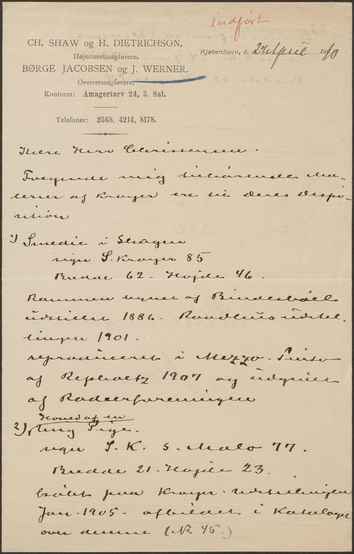 Indført
CH. SHAW og H. DIETRICHSON,
Højesteretssagførere.
BØRGE JACOBSEN og J. WERNER,
Overretssagførere.
Kontoret: Amagertorv 24, 3. Sal.
Telefoner: 2548, 4214, 8178.
Kjøbenhavn, d. 24 April 1910
Kære Herr Christensen.
Følgende mig tilhørende Ma-
lerier af Krøyer er til Deres Dispo-
sition
1) Smedie i Skagen
sign S. Krøyer 85
Bredde 62 - Højde 46.
Rammen tegnet af Bindesbøll
udstillet 1886. Raadhusudstil-
lingen 1901.
reproduceret i Mezzo-Tinto
af 1907 og udgivet
af Raderforeningen
Hoved af en
2) ung Pige.
sign S. K. S. Malo 77.
Bredde 21 - Højde 23.
købt paa Krøyer-Udstillingen
Jan. 1905. afbildet i Kataloget
over denne (Nr 45.)